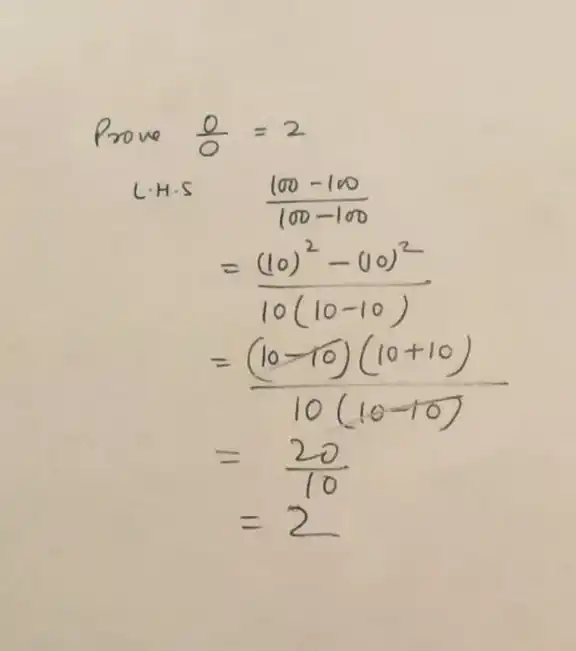 Prove 0/0 = 2
L.H.S (100 - 100)/(100 - 100)
= ((10)² - (10)²)/(10(10-10))
= ((10-10)(10+10))/(10(10-10))
= 20/10
= 2